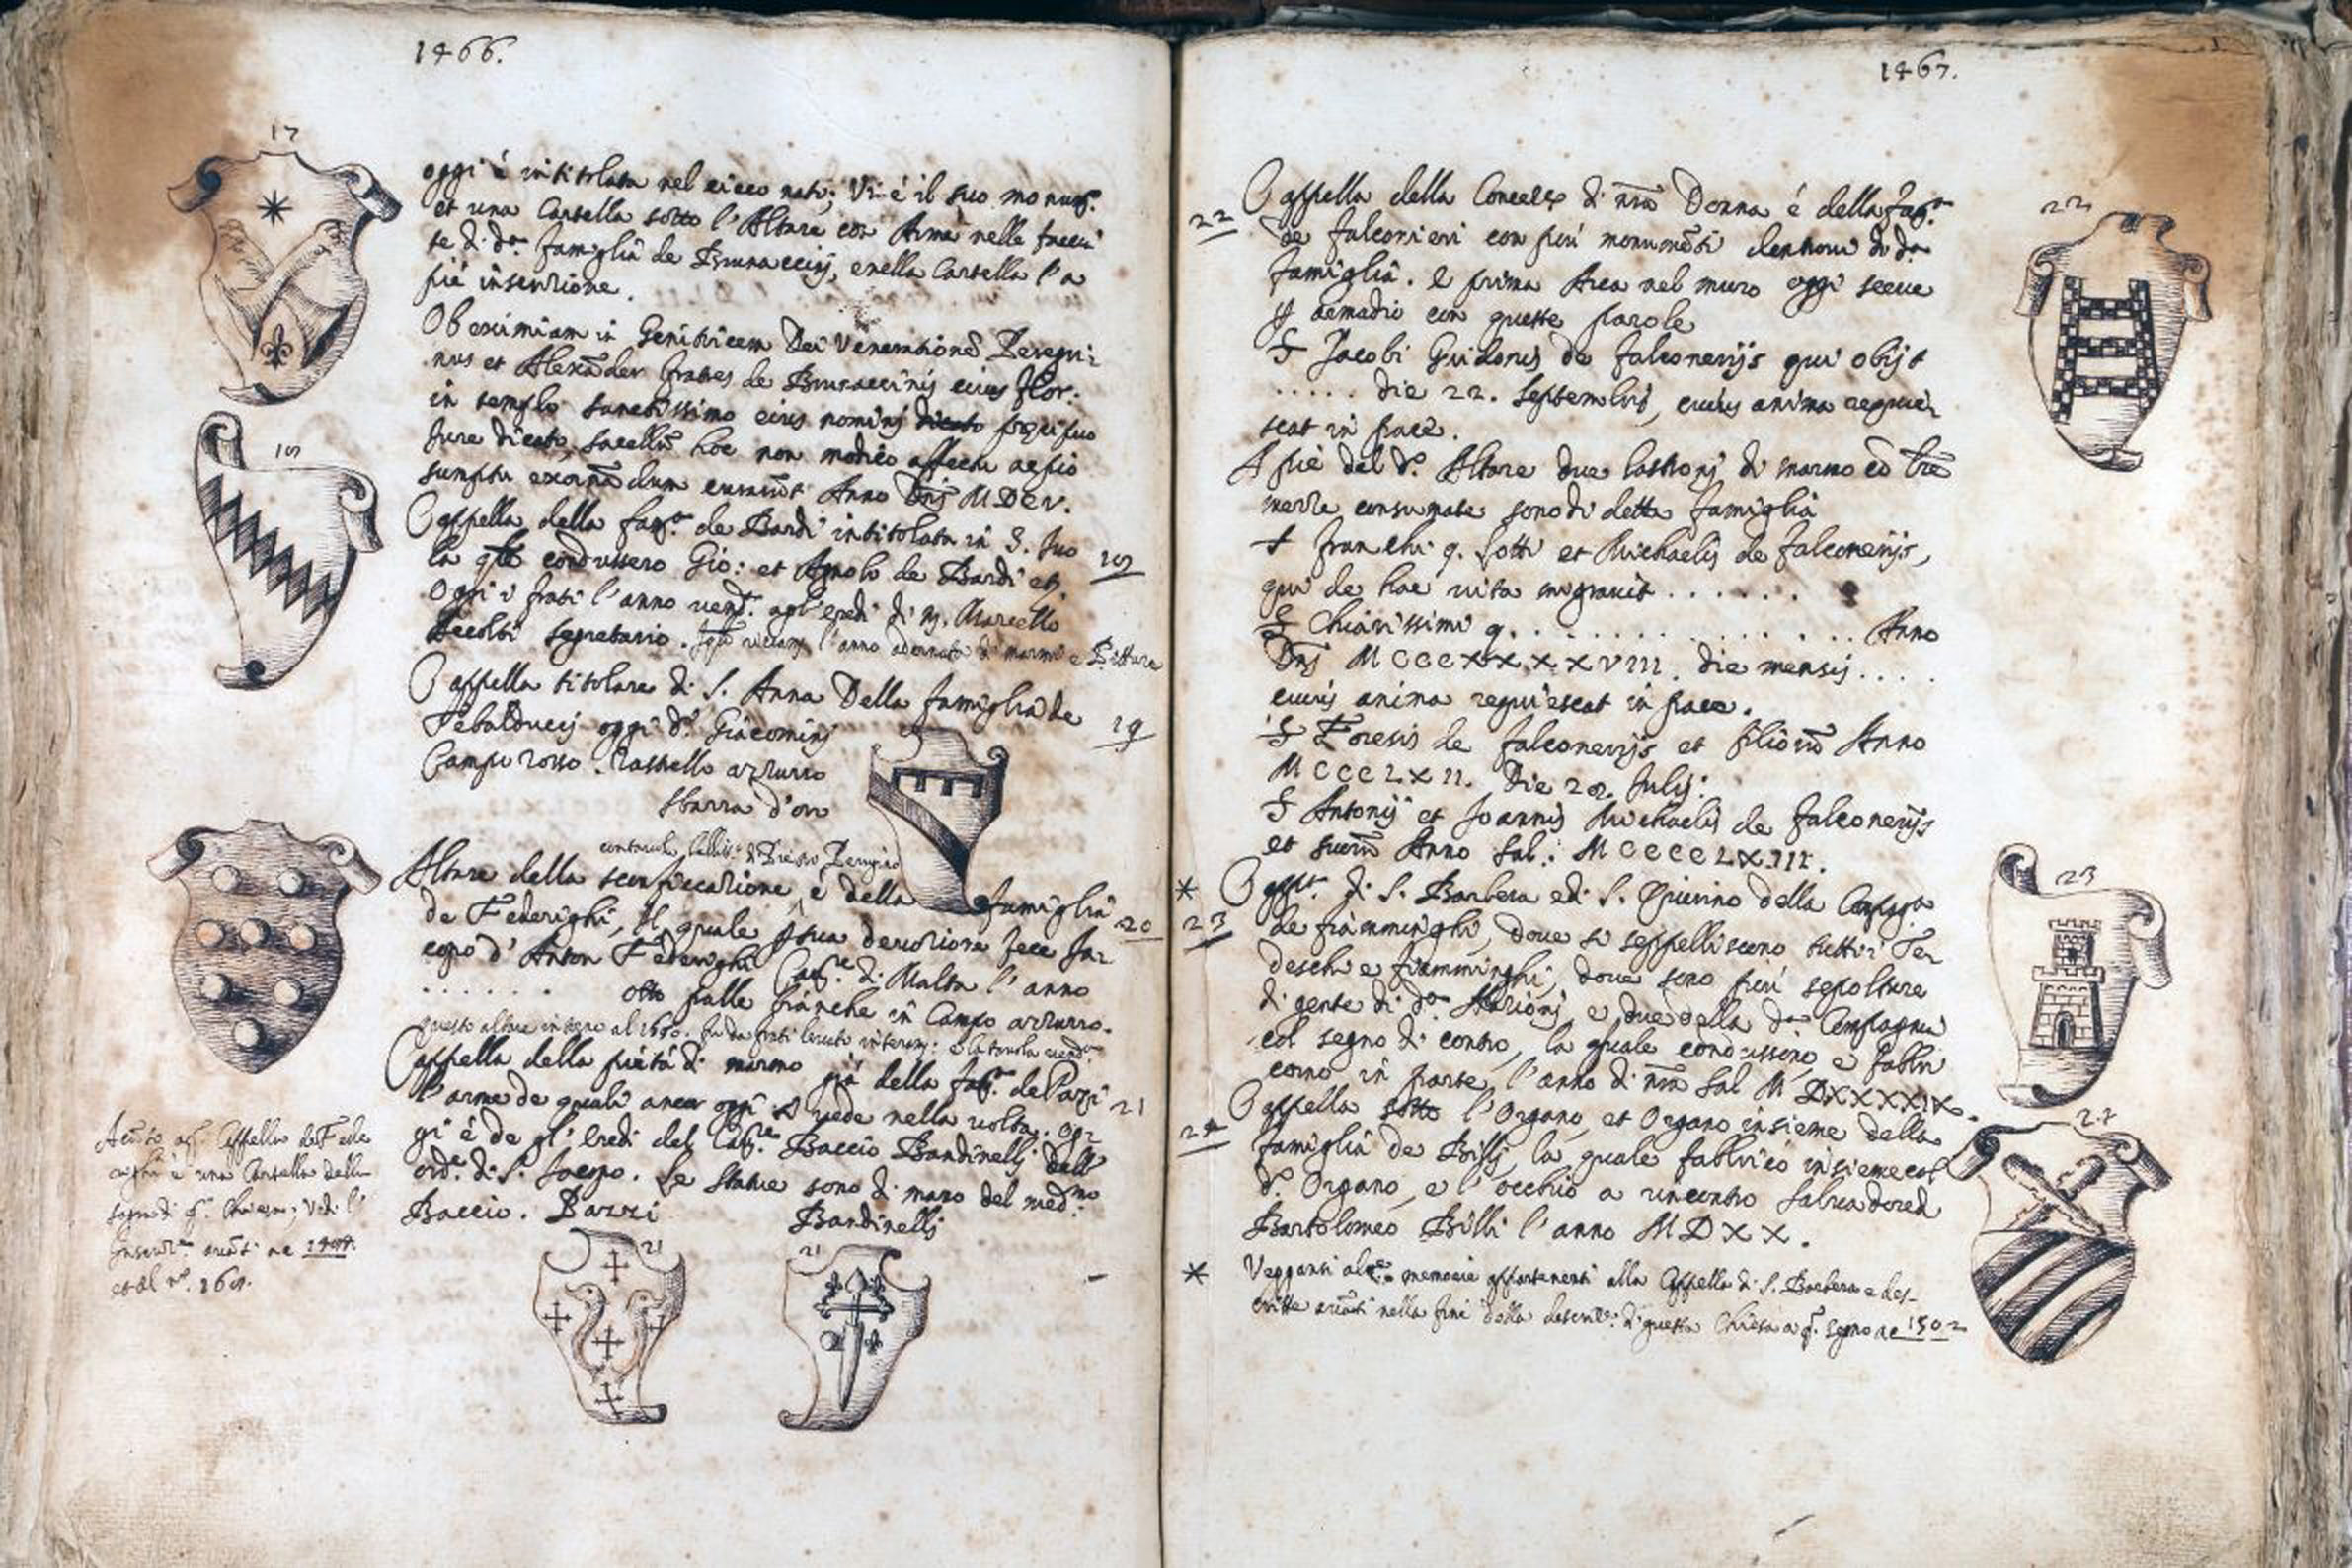 1466.
17
oggi è intitolata nel cieco nato; Vi è il suo monum.to
et una Cartella sotto l'Altare con Arme nelle faccia
te di d.a famiglia de Brunaccinj, e nella Cartella l'a
piè inscrizione.
Ob eximiam in Genitricem Dei Venerationē Peregri:
nus et Alexāder fratres de Brunaccinis cives Flor:
in templo sanctissimo eius nominj dicato
Jure dicato, sacellū hoc non modico affectu ac
sumptu exornādum curarūt Anno Dnj MDCV.
18
Cappella della fam.a de Bardi intitolata in S.
la qle condussero Gio: et Agnolo de Bardi et
oggi i frati l'anno vend. agl'eredi di M. Marcello
Accolti segretario. l'anno adornata di marmi e Pitture
18
Cappella titolare di S. Anna Della famiglia de
Tebalducci oggi d.i Giacominj
19
Campo rosso. Rastello azzurro
Sbarra d'oro
con tavola belliss: di Pietro Perugino
Altare della è della famiglia
20
de Federighi, il quale p sua devozione fece Ja
copo d'Anton Federighi Cav.re di Malta l'anno
. . . . . . otto palle bianche in Campo azzurro.
questo altare intorno al fu da frati levato e la tavola
Cappella della pietà di marmo già della fam.a de Pazzi
21
l'arme de quali ancor oggi si vede nella volta. og
gi è de gl'Eredi del Cav.re Baccio Bandinelli dell
ord.e di S. Jacopo. Le statue sono di mano del med.mo
Baccio. Pazzi
Bandinelli
21
21
Cappella de Fede
è una Cartella della
Vedi l'
et al n.o
1467.
22
22
Cappella della Concez.e di nrā Donna è della fam.a
de Falconieri con più monumēti dentrovi di d.a
famiglia. E prima Arca nel muro oggi serve
p armadio con queste parole
S Jacobi Guidonis de Falconerijs qui obijt
. . . . . die 22. Septembris, cuius anima requie
scat in pace.
A piè del d.o Altare due lastronj di marmo
consumate sono di detta famiglia
S Franchi q. Lotti et Michaelis de Falconerijs,
qui de hac vita migravit . . . . . .
S Chiarissimi q. . . . . . . . . . . . . . . . Anno
Dnj MCCCXXXXVIII. die mensis . . . .
cuius anima requiescat in pace.
S Foresis de Falconerijs et filiorū Anno
MCCCLXII. Die 20. Julij:
S Antonij et Joannis Michaelis de Falconerijs
et suorū Anno Sal: MCCCCLXIII.
23
* Capp.a di S. Barbera e di S. Quirino della Compag.a
23
de fiamminghi, dove si seppelliscono tutti i Te
deschi e fiamminghi, dove sono più sepolture
di gente di d.e Nazioni, e due della d.a Compagnia
col segno di contro, la quale condussono, e fabbri
corno in parte l'anno di nrā Sal MDXXXXIX.
24
24
Cappella sotto l'Organo, et Organo insieme della
famiglia de Billi, la quale fabbricò insieme col
d.o Organo, e l'occhio a rincontro Salvadore di
Bartolomeo Billi l'anno MDXX.
* Veggansi alc.e memorie appartenenti alla Cappella di S. Barbera e des-
critte avāti nella fine della descriz.e: di questa Chiesa a q. segno a c 1502